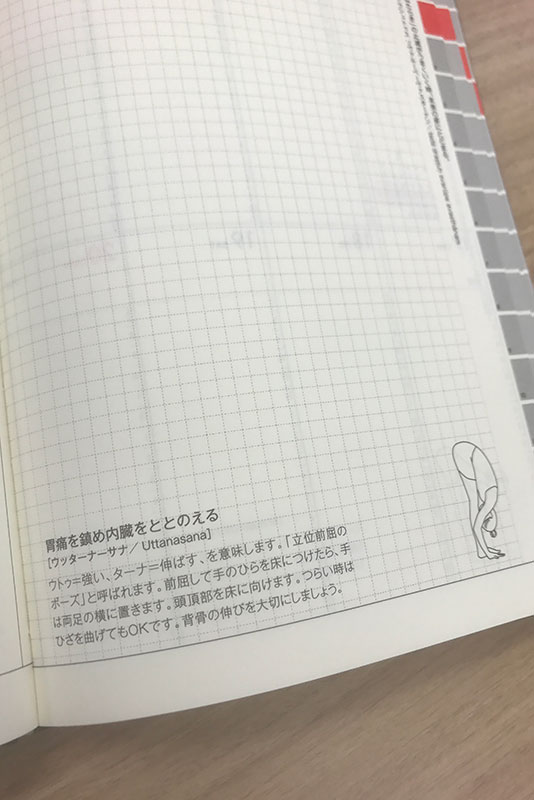 胃痛を鎮め内臓をととのえる
[ウッターナーサナ／Uttanasana]
ウトゥ＝強い、ターナ＝伸ばす、を意味します。「立位前屈の
ポーズ」と呼ばれます。前屈して手のひらを床につけたら、手
は両足の横に置きます。頭頂部を床に向けます。つらい時は
ひざを曲げてもOKです。背骨の伸びを大切にしましょう。